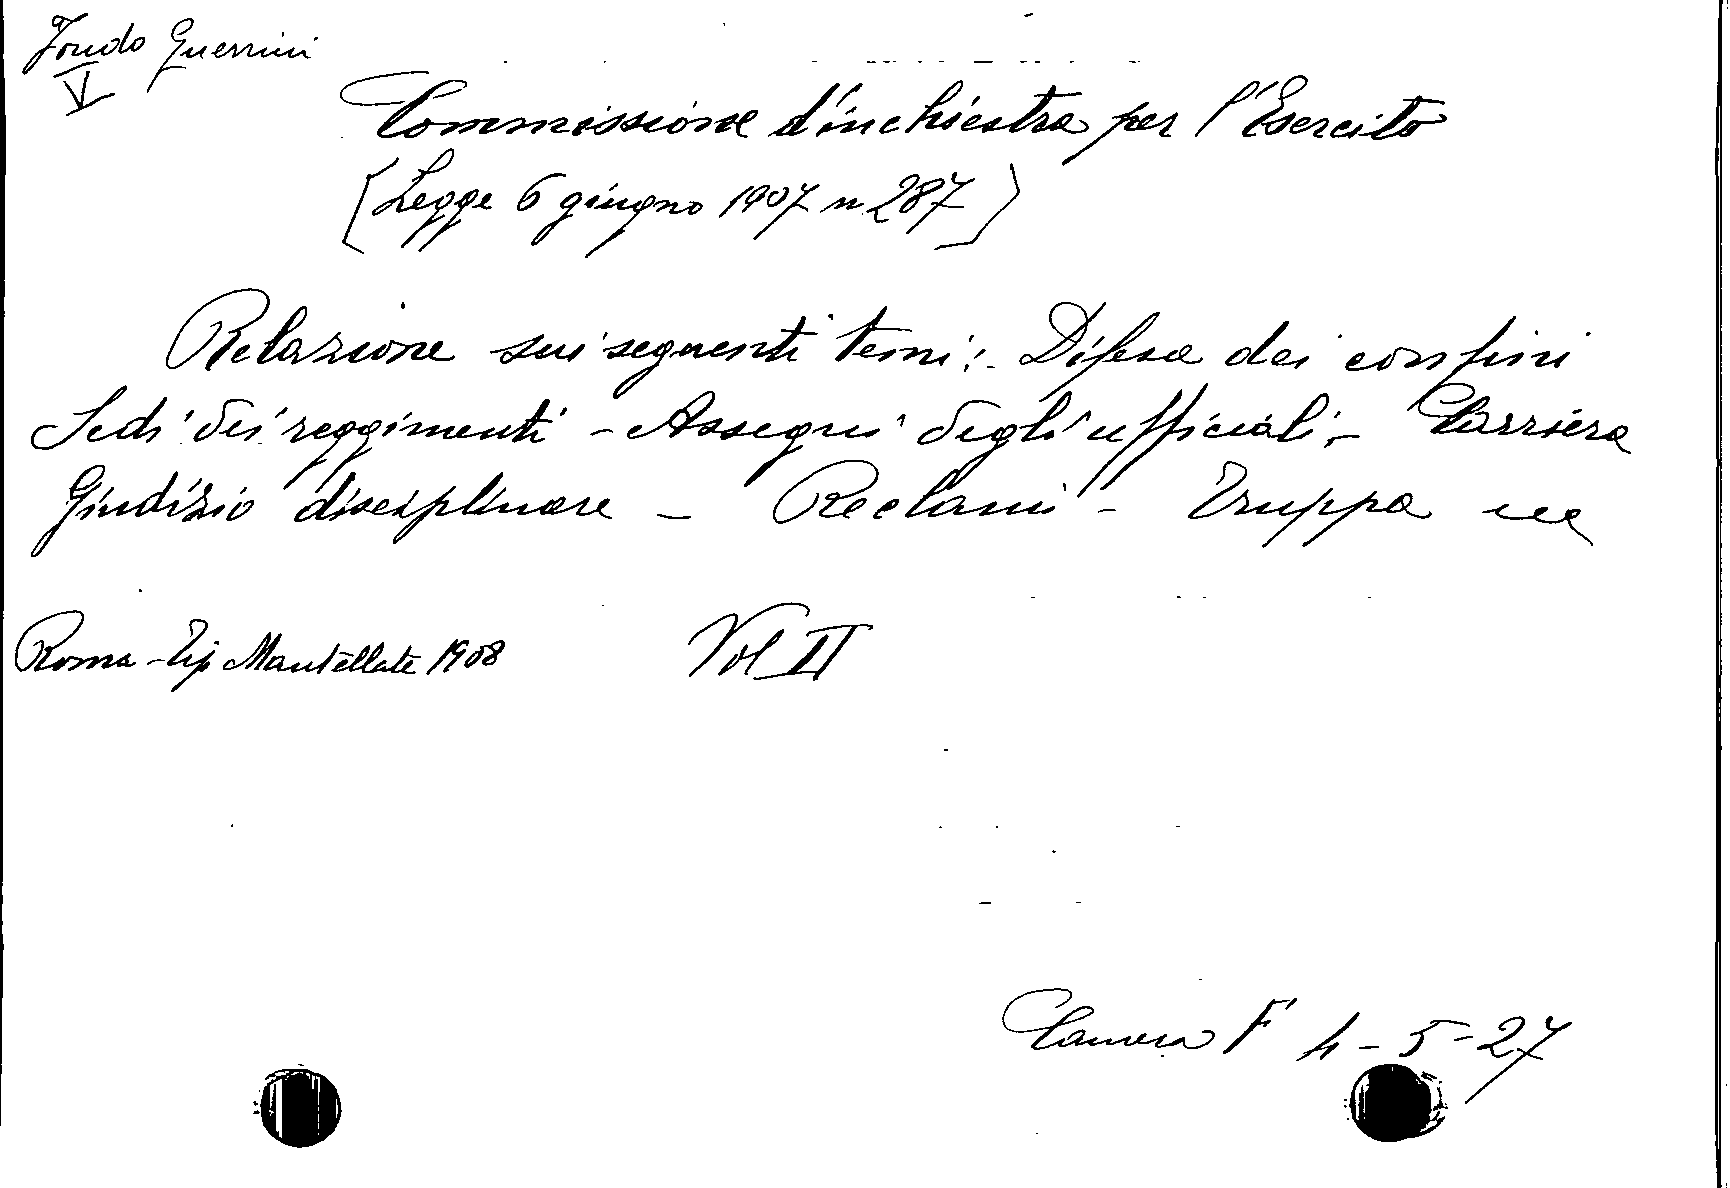 Fondo Guerrini
V
Commissione d'inchiesta per l'Esercito
(Legge 6 giugno 1907 n 287)
Relazione sui seguenti temi:- Difesa dei confini
Sedi dei reggimenti - Assegni degli ufficiali - Carriera
Giudizio disciplinare - Reclami - Truppa ecc
Roma - Tip Mantellate 1908 Vol II
Camera F 4-5-27